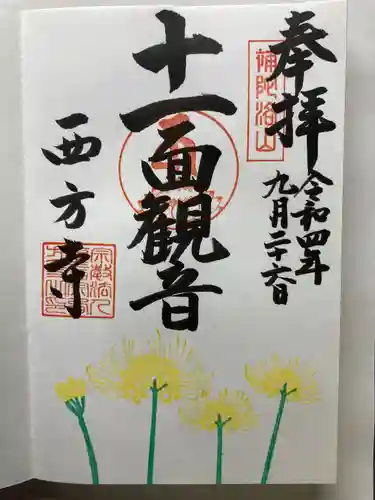 奉拝
令和四年
九月二十六日
補陀洛山
十一面観音
西方寺